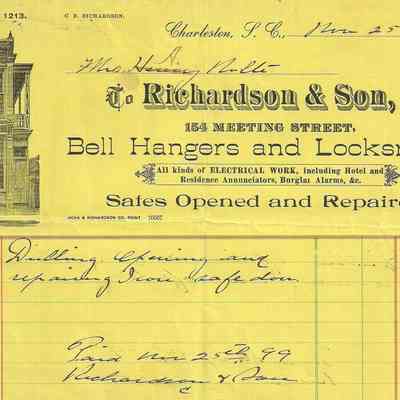 1213.
C. P. RICHARDSON.
Charleston, S. C., Nov 25
Mrs. Henry Nolte
To Richardson & Son,
154 MEETING STREET,
Bell Hangers and Locksm
All kinds of ELECTRICAL WORK, including Hotel and
Residence Annunciators, Burglar Alarms, &c.
Safes Opened and Repaire
RICHARDSON CO. PRINT 10007
Drilling Opening and
repairing Iron safe door
Paid Nov 25th 99
Richardson & Son